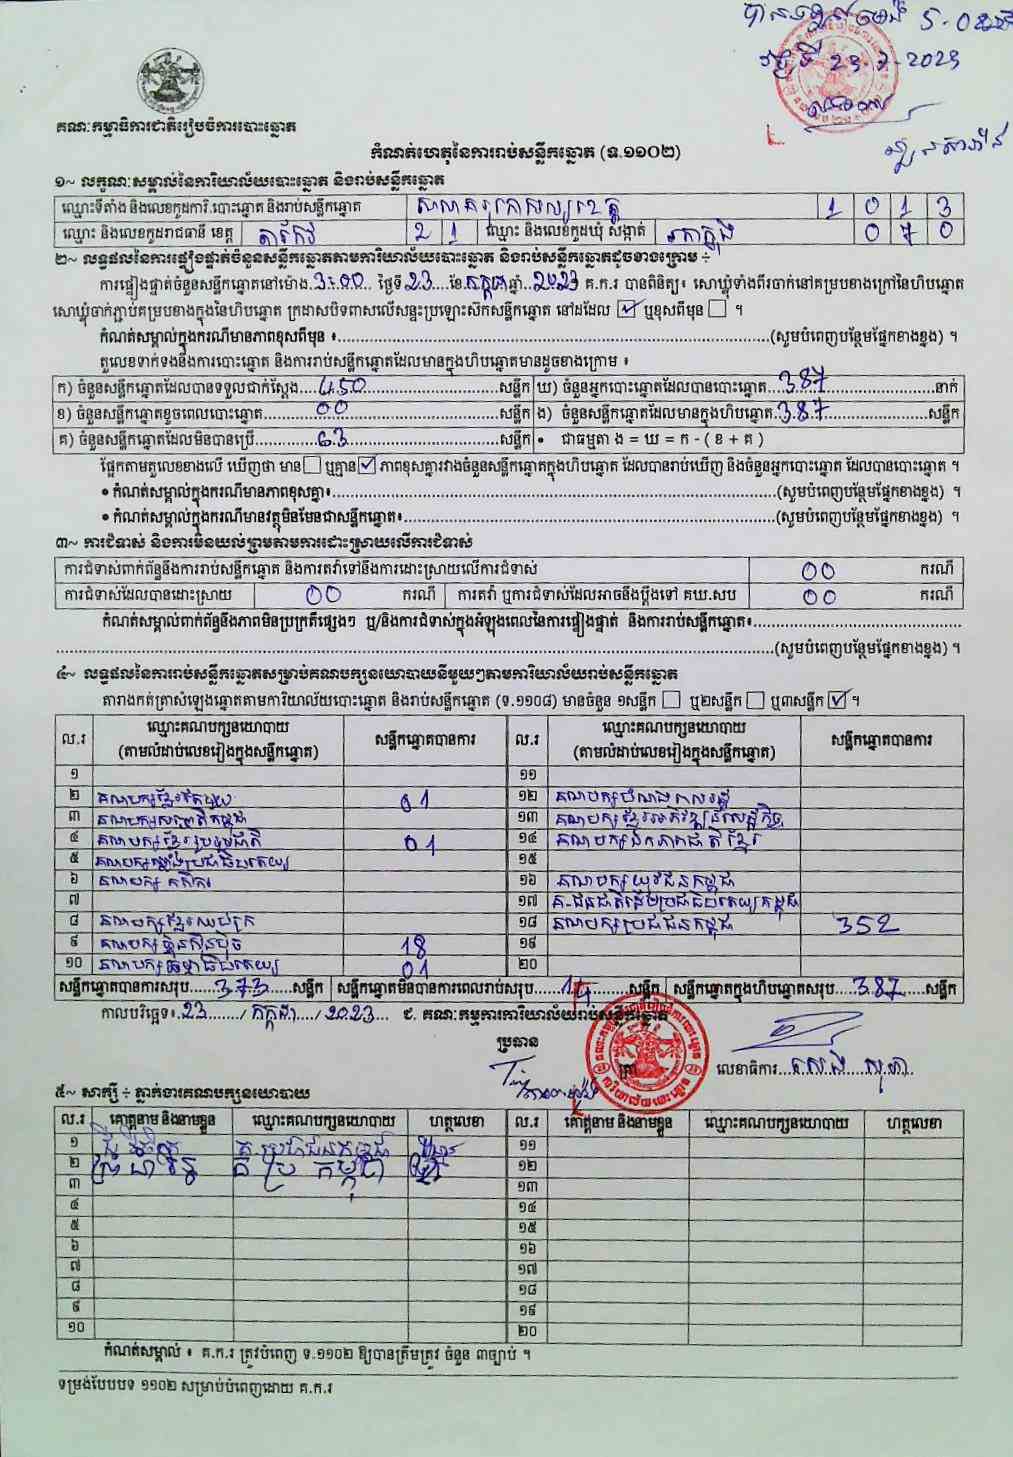 វេលាម៉ោង 5-08
ថ្ងៃទី 23-7-2023
គណៈកម្មាធិការជាតិរៀបចំការបោះឆ្នោត
កំណត់ហេតុនៃការរាប់សន្លឹកឆ្នោត (ទ.១១០២)
១~ លក្ខណៈសម្គាល់នៃការិយាល័យបោះឆ្នោត និងរាប់សន្លឹកឆ្នោត
ឈ្មោះទីតាំង និងលេខកូដការិ.បោះឆ្នោត និងរាប់សន្លឹកឆ្នោត 1 0 1 3
ឈ្មោះ និងលេខកូដរាជធានី ខេត្ត តាកែវ 2 1 ឈ្មោះ និងលេខកូដឃុំ សង្កាត់ រកាក្នុង 0 7 0
២~ លទ្ធផលនៃការផ្ទៀងផ្ទាត់ចំនួនសន្លឹកឆ្នោតតាមការិយាល័យបោះឆ្នោត និងរាប់សន្លឹកឆ្នោតដូចខាងក្រោម ÷
ការផ្ទៀងផ្ទាត់ចំនួនសន្លឹកឆ្នោតនៅម៉ោង.3:00... ថ្ងៃទី23....ខែ.កក្កដា.ឆ្នាំ..2023 គ.ក.រ បានពិនិត្យ៖ សោឃ្លុំទាំងពីរចាក់នៅគម្របខាងក្រៅនៃហិបឆ្នោត
សោឃ្លុំចាក់ភ្ជាប់គម្របខាងក្នុងនៃហិបឆ្នោត ក្រដាសបិទពាសលើសន្ទះប្រឡោះស៊កសន្លឹកឆ្នោត នៅដដែល ☑ ឬខុសពីមុន ☐ ។
កំណត់សម្គាល់ក្នុងករណីមានភាពខុសពីមុន ៖......(សូមបំពេញបន្ថែមផ្នែកខាងខ្នង) ។
តួលេខទាក់ទងនឹងការបោះឆ្នោត និងការរាប់សន្លឹកឆ្នោតដែលមានក្នុងហិបឆ្នោតមានដូចខាងក្រោម ៖
ក) ចំនួនសន្លឹកឆ្នោតដែលបានទទួលជាក់ស្តែង....450......សន្លឹក ឃ) ចំនួនអ្នកបោះឆ្នោតដែលបានបោះឆ្នោត..387......នាក់
ខ) ចំនួនសន្លឹកឆ្នោតខូចពេលបោះឆ្នោត......00......សន្លឹក ង) ចំនួនសន្លឹកឆ្នោតដែលមានក្នុងហិបឆ្នោត.387......សន្លឹក
គ) ចំនួនសន្លឹកឆ្នោតដែលមិនបានប្រើ......63......សន្លឹក • ជាធម្មតា ង = ឃ = ក - ( ខ + គ )
ផ្អែកតាមតួលេខខាងលើ ឃើញថា មាន☐ឬគ្មាន☑ ភាពខុសគ្នារវាងចំនួនសន្លឹកឆ្នោតក្នុងហិបឆ្នោត ដែលបានរាប់ឃើញ និងចំនួនអ្នកបោះឆ្នោត ដែលបានបោះឆ្នោត ។
• កំណត់សម្គាល់ក្នុងករណីមានភាពខុសគ្នា៖......(សូមបំពេញបន្ថែមផ្នែកខាងខ្នង) ។
• កំណត់សម្គាល់ក្នុងករណីមានវត្ថុមិនមែនជាសន្លឹកឆ្នោត៖......(សូមបំពេញបន្ថែមផ្នែកខាងខ្នង) ។
៣~ ការជំទាស់ និងការមិនយល់ព្រមតាមការដោះស្រាយលើការជំទាស់
ការជំទាស់ពាក់ព័ន្ធនឹងការរាប់សន្លឹកឆ្នោត និងការតវ៉ាទៅនឹងការដោះស្រាយលើការជំទាស់ 00 ករណី
ការជំទាស់ដែលបានដោះស្រាយ 00 ករណី ការតវ៉ា ឬការជំទាស់ដែលអាចនឹងប្តឹងទៅ គឃ.សប 00 ករណី
កំណត់សម្គាល់ពាក់ព័ន្ធនឹងភាពមិនប្រក្រតីផ្សេងៗ ឬ/និងការជំទាស់ក្នុងអំឡុងពេលនៃការផ្ទៀងផ្ទាត់ និងការរាប់សន្លឹកឆ្នោត៖......
......(សូមបំពេញបន្ថែមផ្នែកខាងខ្នង) ។
៤~ លទ្ធផលនៃការរាប់សន្លឹកឆ្នោតសម្រាប់គណបក្សនយោបាយនីមួយៗតាមការិយាល័យរាប់សន្លឹកឆ្នោត
តារាងកត់ត្រាសំឡេងឆ្នោតតាមការិយាល័យបោះឆ្នោត និងរាប់សន្លឹកឆ្នោត (ទ.១១០៨) មានចំនួន ១សន្លឹក ☐ ឬ២សន្លឹក ☐ ឬ៣សន្លឹក ☑ ។
ល.រ ឈ្មោះគណបក្សនយោបាយ (តាមលំដាប់លេខរៀងក្នុងសន្លឹកឆ្នោត) សន្លឹកឆ្នោតបានការ ល.រ ឈ្មោះគណបក្សនយោបាយ (តាមលំដាប់លេខរៀងក្នុងសន្លឹកឆ្នោត) សន្លឹកឆ្នោតបានការ
១ ១១
២ គណបក្សខ្មែរតែមួយ 01 ១២ គណបក្សបំណងពលរដ្ឋ
៣ គណបក្សសញ្ជាតិកម្ពុជា ១៣ គណបក្សខ្មែរអភិវឌ្ឍន៍សេដ្ឋកិច្ច
៤ គណបក្សខ្មែររួបរួមជាតិ 01 ១៤ គណបក្សឯកភាពជាតិខ្មែរ
៥ គណបក្សកម្លាំងប្រជាធិបតេយ្យ ១៥
៦ គណបក្សកសិករ ១៦ គណបក្សយុវជនកម្ពុជា
៧ ១៧ គ.ជនជាតិដើមប្រជាធិបតេយ្យកម្ពុជា
៨ គណបក្សខ្មែរឈប់ក្រ ១៨ គណបក្សប្រជាជនកម្ពុជា 352
៩ គណបក្សហ្វ៊ុនស៊ិនប៉ិច 18 ១៩
១០ គណបក្សធម្មាធិបតេយ្យ 01 ២០
សន្លឹកឆ្នោតបានការសរុប....373....សន្លឹក សន្លឹកឆ្នោតមិនបានការពេលរាប់សរុប.....14.....សន្លឹក សន្លឹកឆ្នោតក្នុងហិបឆ្នោតសរុប...387....សន្លឹក
កាលបរិច្ឆេទ៖.23......./ កក្កដា.../ 2023... ជ. គណៈកម្មការការិយាល័យរាប់សន្លឹកឆ្នោត
ប្រធាន
លេខាធិការ...
៥~ សាក្សី ÷ ភ្នាក់ងារគណបក្សនយោបាយ
ល.រ គោត្តនាម និងនាមខ្លួន ឈ្មោះគណបក្សនយោបាយ ហត្ថលេខា ល.រ គោត្តនាម និងនាមខ្លួន ឈ្មោះគណបក្សនយោបាយ ហត្ថលេខា
១ គ ប្រជាជនកម្ពុជា ១១
២ គ ប្រ កម្ពុជា ១២
៣ ១៣
៤ ១៤
៥ ១៥
៦ ១៦
៧ ១៧
៨ ១៨
៩ ១៩
១០ ២០
កំណត់សម្គាល់ ៖ គ.ក.រ ត្រូវបំពេញ ទ.១១០២ ឱ្យបានត្រឹមត្រូវ ចំនួន ៣ច្បាប់ ។
ទម្រង់បែបបទ ១១០២ សម្រាប់បំពេញដោយ គ.ក.រ